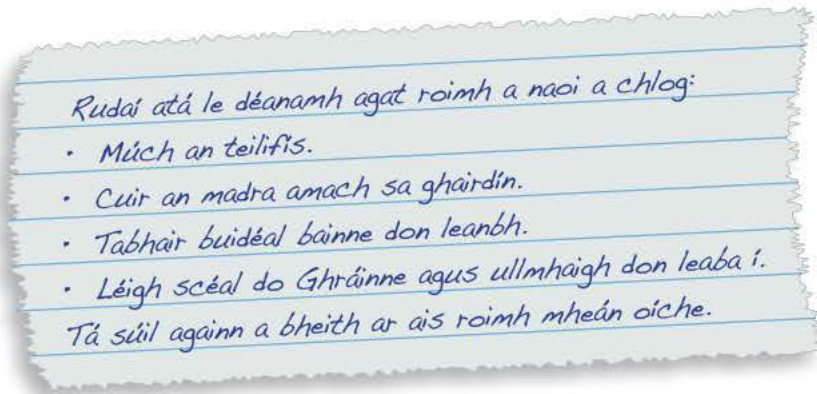 Rudaí atá le déanamh agat roimh a naoi a chlog:
• Múch an teilifís.
• Cuir an madra amach sa ghairdín.
• Tabhair buidéal bainne don leanbh.
• Léigh scéal do Ghráinne agus ullmhaigh don leaba í.
Tá súil againn a bheith ar ais roimh mheán oíche.